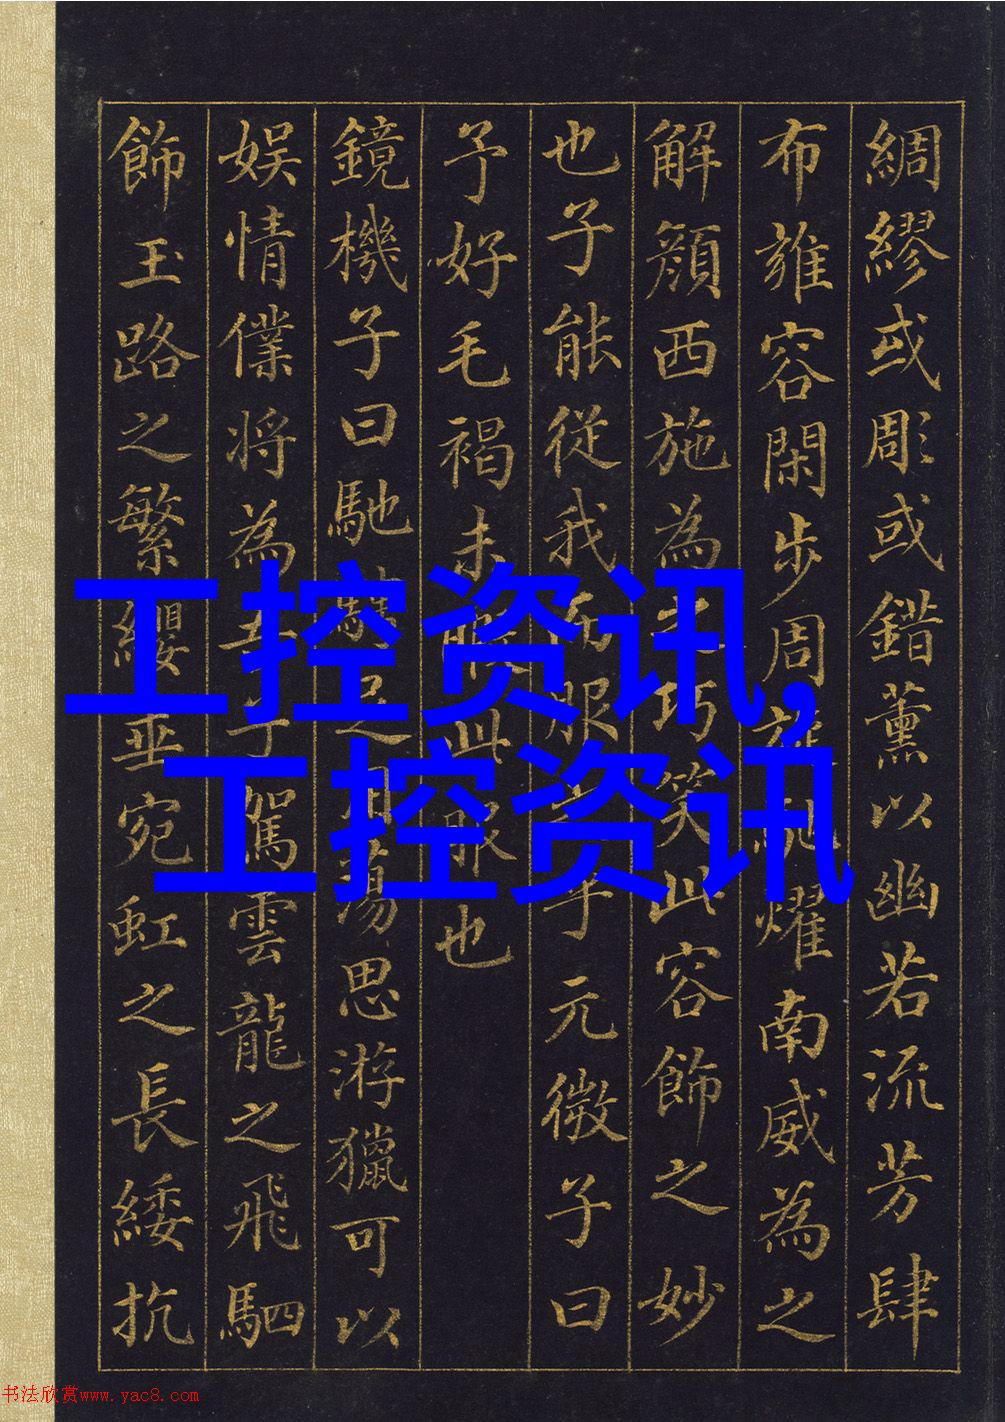 綢繆或彫或錯薰以幽若流芳肆
布雍容閑步周旋馳燿南威為之
解顔西施為之巧笑此容飾之妙
也子能從我而服之乎元微子曰
予好毛褐未暇此服也
鏡機子曰馳騁足用蕩思游獵可以
娯情僕將為吾子駕雲龍之飛駟
飾玉路之繁纓垂宛虹之長緌抗
工控资讯,
工控资讯
书法欣赏www.yac8.com